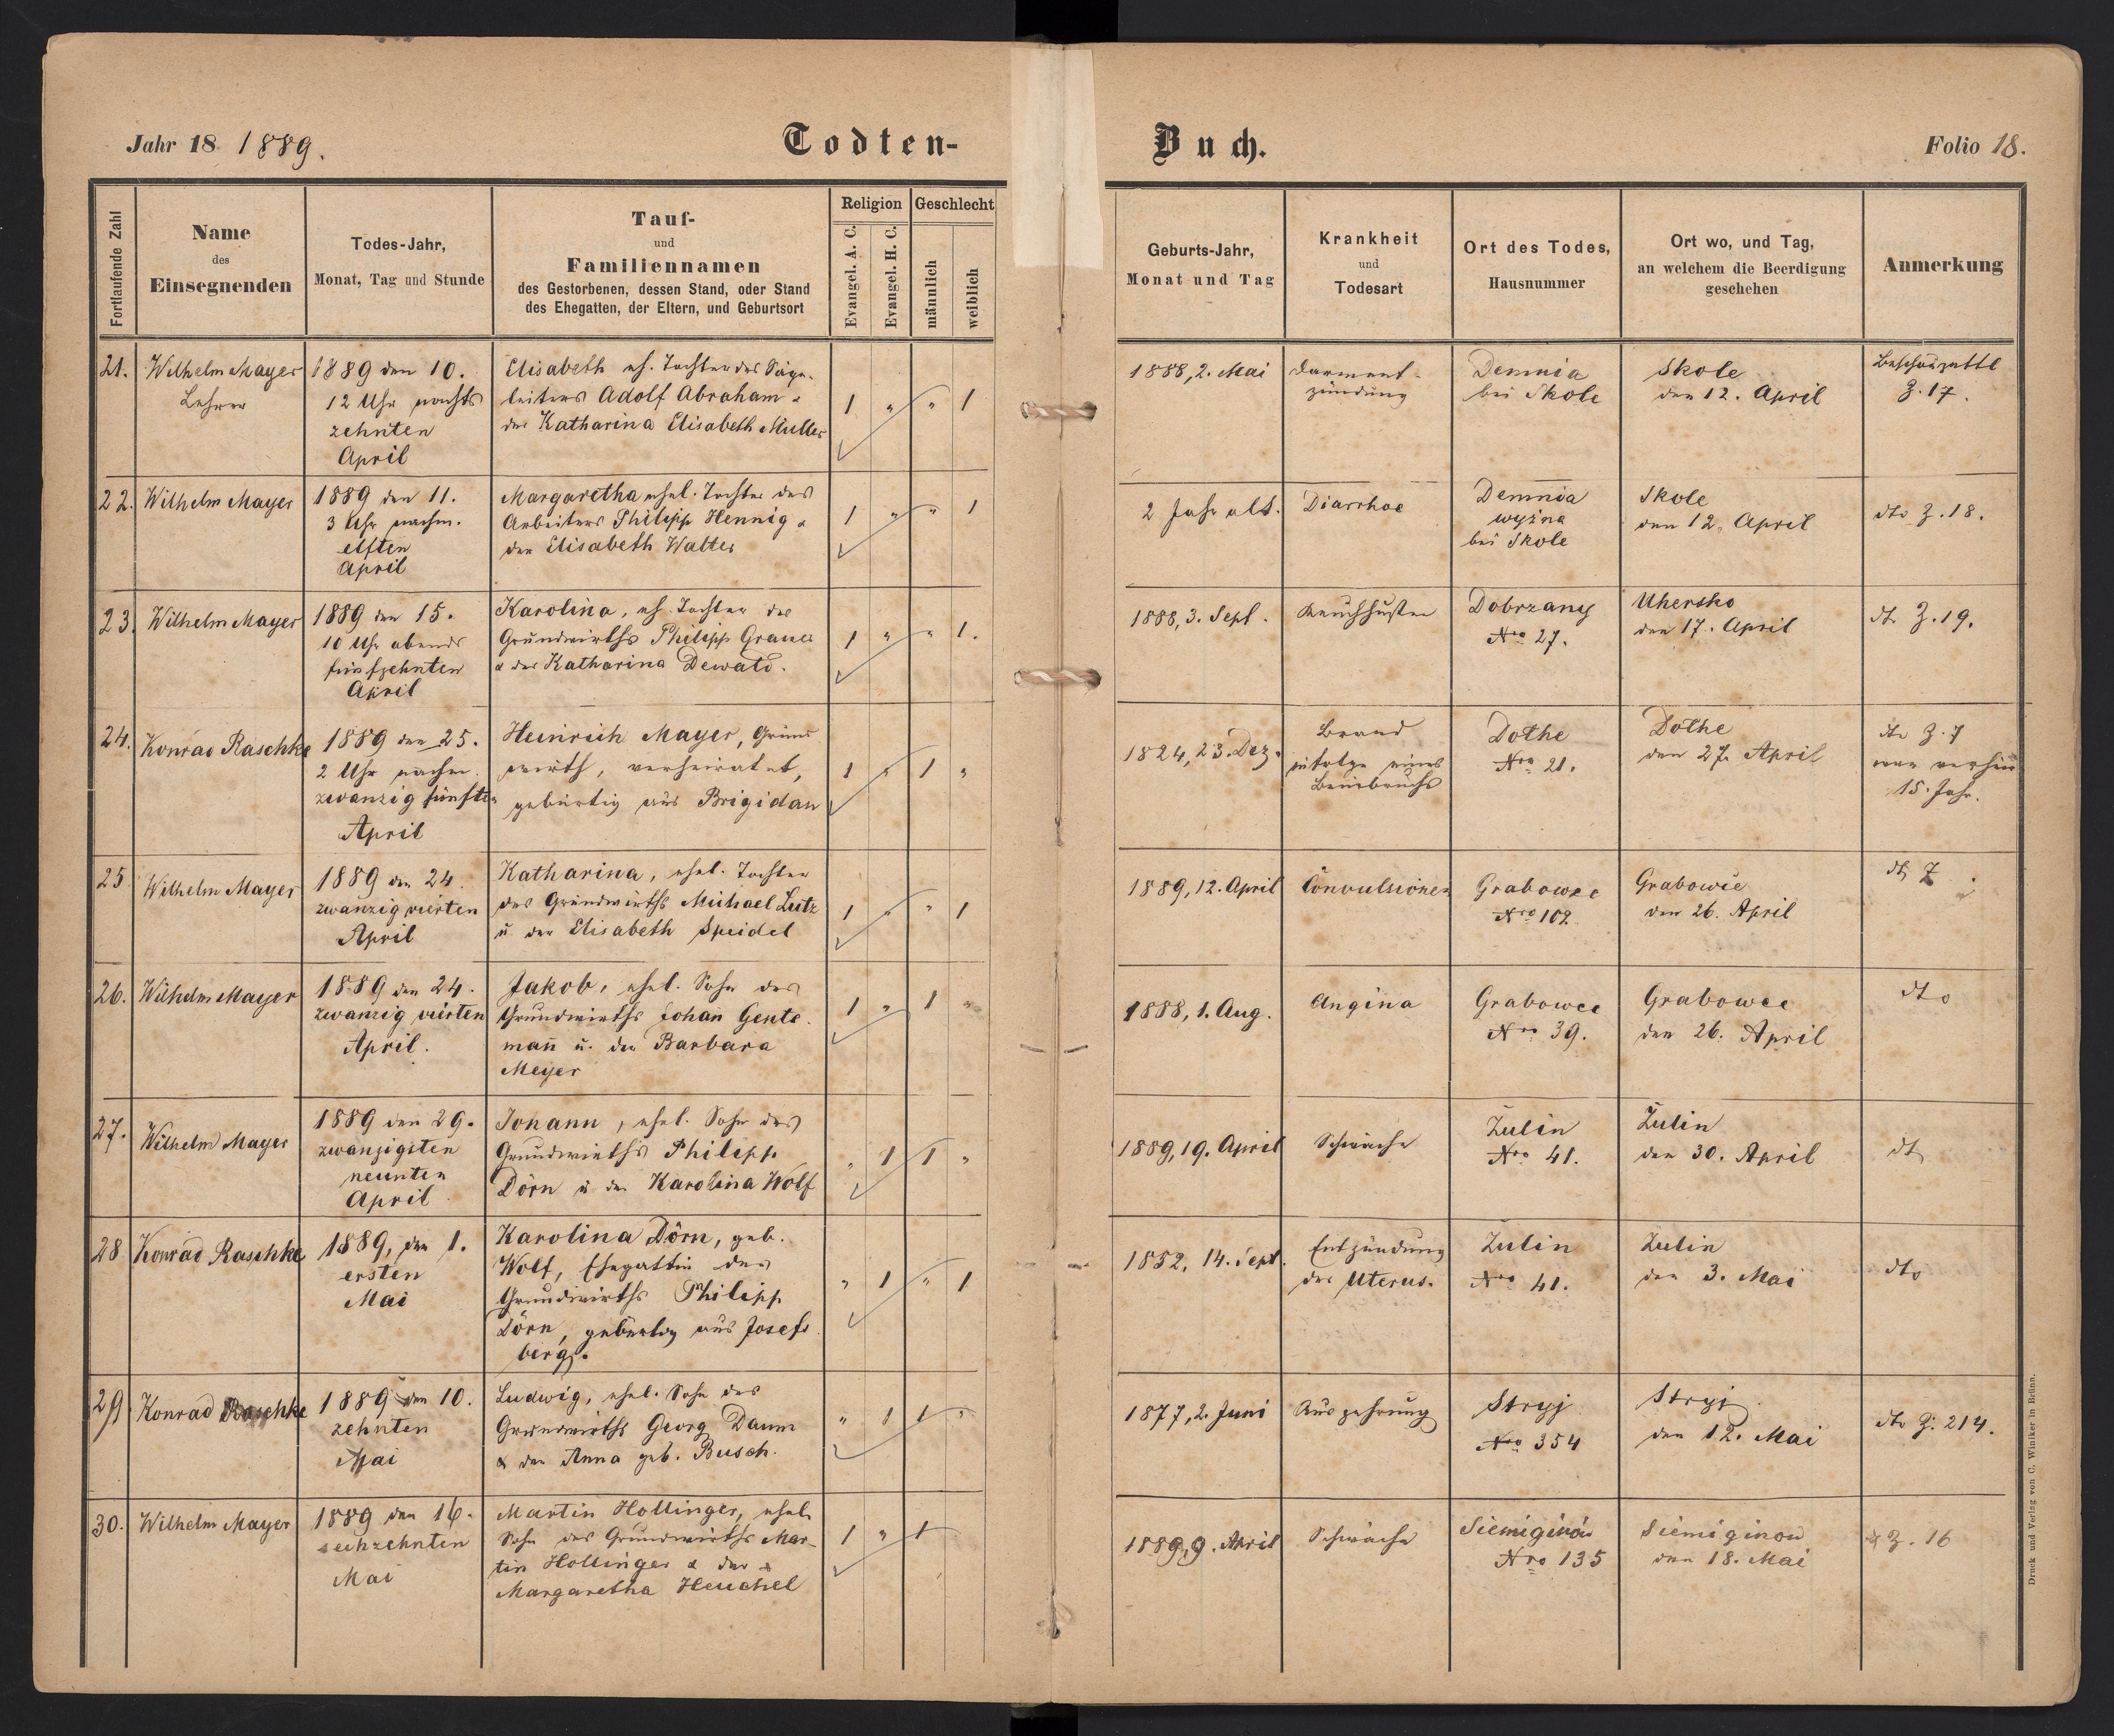 Jahr 18 1889.
Todten-
Buch.
Folio 18.
Fortlaufende Zahl
Name
des
Einsegnenden
Todes-Jahr,
Monat, Tag und Stunde
Tauf-
und
Familiennamen
des Gestorbenen, dessen Stand, oder Stand
des Ehegatten, der Eltern, und Geburtsort
Religion
Evangel. A. C.
Evangel. H. C.
Geschlecht
männlich
weiblich
Geburts-Jahr,
Monat und Tag
Krankheit
und
Todesart
Ort des Todes,
Hausnummer
Ort wo, und Tag,
an welchem die Beerdigung
geschehen
Anmerkung
21.
Wilhelm Mayer
Lehrer
1889 den 10.
12 Uhr nachts
zehnten
April
Elisabeth eh. Tochter des Säge-
leiters Adolf Abraham &
der Katharina Elisabeth Müller
1 " " 1
1888, 2. Mai
Darment-
zündung
Demnia
bei Skole
Skole
den 12. April
Beschauzettl
Z. 17.
22.
Wilhelm Mayer
1889 den 11.
3 Uhr nachm.
elften
April
Margaretha ehel. Tochter des
Arbeiters Philipp Hennig &
der Elisabeth Walter
1 " " 1
2 Jahr alt.
Diarrhoe
Demnia
wyżna
bei Skole
Skole
den 12. April
dto Z. 18.
23.
Wilhelm Mayer
1889 den 15.
10 Uhr abends
fünfzehnten
April
Karolina, eh. Tochter des
Grundwirths Philipp Grauer
& der Katharina Dewald.
1 " " 1.
1888, 3. Sept.
Keuchhusten
Dobrzany
Nro 27.
Uhersko
den 17. April
dt. Z. 19.
24.
Konrad Raschke
1889 den 25.
2 Uhr nachm.
zwanzig fünften
April
Heinrich Mayer, Grund
wirth, verheiratet,
gebürtig aus Brigidau
1 " 1 "
1824, 23. Dez.
Brand
infolge eines
Beinbruchs
Dolhe
Nro 21.
Dolhe
den 27. April
dto Z. 7
war verhei
15. Jahr.
25
Wilhelm Mayer
1889 den 24.
zwanzig vierten
April
Katharina, ehel. Tochter
des Grundwirths Michael Lutz
u. der Elisabeth Speidel
1 " " 1
1889, 12. April
Convulsionen
Grabowce
Nro 102
Grabowce
den 26. April
dto Z.
26.
Wilhelm Mayer
1889 den 24.
zwanzig vierten
April.
Jakob, ehel. Sohn des
Grundwirths Johan Gente-
mañ u. der Barbara
Meyer
1 " 1 "
1888, 1. Aug.
Angina
Grabowce
Nro 39.
Grabowce
den 26. April
dto
27.
Wilhelm Mayer
1889 den 29.
zwanzigsten
neunten
April
Johann, ehel. Sohn des
Grundwirths Philipp
Dörn u. der Karolina Wolf
" 1 1 "
1889, 19. April
Schwäche
Żulin
Nro 41.
Żulin
den 30. April
dto
28
Konrad Raschke
1889, den 1.
ersten
Mai
Karolina Dörn, geb.
Wolf, Ehegattin des
Grundwirths Philipp
Dörn, gebürtig aus Josefs
berg.
" 1 " 1
1852, 14. Sept.
Entzündung
des Uterus.
Zulin
Nro 41.
Zulin
den 3. Mai
dto
29.
Konrad Raschke
1889 den 10.
zehnten
Mai
Ludwig, ehel. Sohn des
Grundwirths Georg Daum
& der Anna geb. Busch.
" 1 1 "
1877, 2. Juni
Auszehrung
Stryj
Nro 354
Stryj
den 12. Mai
dto Z. 214.
30.
Wilhelm Mayer
1889 den 16.
sechzehnten
Mai
Martin Hollinger, ehel.
Sohn des Grundwirths Mar-
tin Hollinger & der
Margaretha Heuchel
1 " 1
1889, 9. April
Schwäche
Siemiginów
Nro 135
Siemiginow
den 18. Mai
Z. 16
Druck und Verlag von C. Winiker in Brünn.